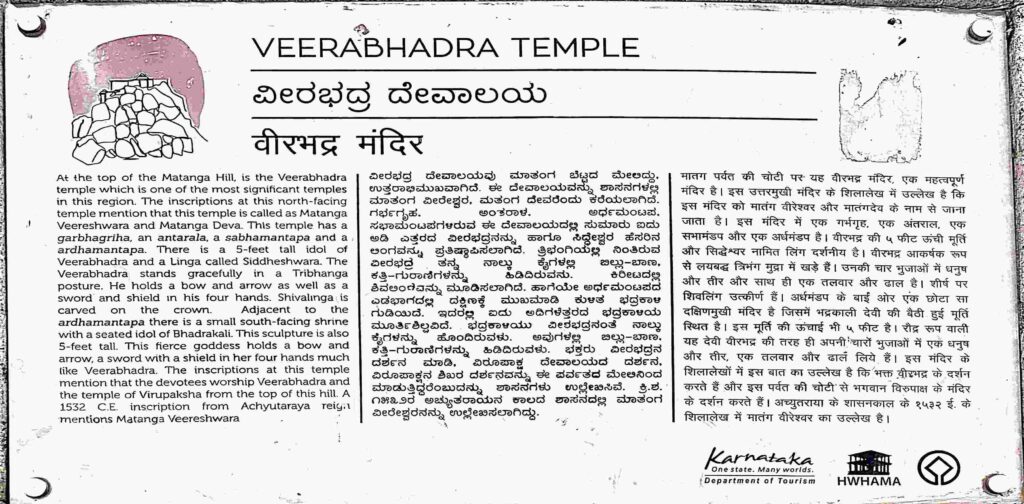 VEERABHADRA TEMPLE
ವೀರಭದ್ರ ದೇವಾಲಯ
वीरभद्र मंदिर
At the top of the Matanga Hill, is the Veerabhadra
temple which is one of the most significant temples
in this region. The inscriptions at this north-facing
temple mention that this temple is called as Matanga
Veereshwara and Matanga Deva. This temple has a
garbhagriha, an antarala, a sabhamantapa and a
ardhamantapa. There is a 5-feet tall idol of
Veerabhadra and a Linga called Siddheshwara. The
Veerabhadra stands gracefully in a Tribhanga
posture. He holds a bow and arrow as well as a
sword and shield in his four hands. Shivalinga is
carved on the crown. Adjacent to the
ardhamantapa there is a small south-facing shrine
with a seated idol of Bhadrakali. This sculpture is also
5-feet tall. This fierce goddess holds a bow and
arrow, a sword with a shield in her four hands much
like Veerabhadra. The inscriptions at this temple
mention that the devotees worship Veerabhadra and
the temple of Virupaksha from the top of this hill. A
1532 C.E. inscription from Achyutaraya reign
mentions Matanga Veereshwara
ವೀರಭದ್ರ ದೇವಾಲಯವು ಮಾತಂಗ ಬೆಟ್ಟದ ಮೇಲಿದ್ದು,
ಉತ್ತರಾಭಿಮುಖವಾಗಿದೆ. ಈ ದೇವಾಲಯವನ್ನು ಶಾಸನಗಳಲ್ಲಿ
ಮಾತಂಗ ವೀರೇಶ್ವರ, ಮತಂಗ ದೇವರೆಂದು ಕರೆಯಲಾಗಿದೆ.
ಗರ್ಭಗೃಹ, ಅಂತರಾಳ, ಅರ್ಧಮಂಟಪ,
ಸಭಾಮಂಟಪಗಳಿರುವ ಈ ದೇವಾಲಯದಲ್ಲಿ ಸುಮಾರು ಐದು
ಅಡಿ ಎತ್ತರದ ವೀರಭದ್ರನನ್ನು ಹಾಗೂ ಸಿದ್ದೇಶ್ವರ ಹೆಸರಿನ
ಲಿಂಗವನ್ನು ಪ್ರತಿಷ್ಠಾಪಿಸಲಾಗಿದೆ. ತ್ರಿಭಂಗಿಯಲ್ಲಿ ನಿಂತಿರುವ
ವೀರಭದ್ರ ತನ್ನ ನಾಲ್ಕು ಕೈಗಳಲ್ಲಿ ಬಿಲ್ಲು-ಬಾಣ,
ಕತ್ತಿ-ಗುರಾಣಿಗಳನ್ನು ಹಿಡಿದಿರುವನು. ಕಿರೀಟದಲ್ಲಿ
ಶಿವಲಿಂಗವನ್ನು ಮೂಡಿಸಲಾಗಿದೆ. ಹಾಗೆಯೇ ಅರ್ಧಮಂಟಪದ
ಎಡಭಾಗದಲ್ಲಿ ದಕ್ಷಿಣಕ್ಕೆ ಮುಖಮಾಡಿ ಕುಳಿತ ಭದ್ರಕಾಳಿ
ಗುಡಿಯಿದೆ. ಇದರಲ್ಲಿ ಐದು ಅಡಿಗಳೆತ್ತರದ ಭದ್ರಕಾಳಿಯ
ಮೂರ್ತಿಶಿಲ್ಪವಿದೆ. ಭದ್ರಕಾಳಿಯು ವೀರಭದ್ರನಂತೆ ನಾಲ್ಕು
ಕೈಗಳನ್ನು ಹೊಂದಿರುವಳು. ಅವುಗಳಲ್ಲಿ ಬಿಲ್ಲು-ಬಾಣ,
ಕತ್ತಿ-ಗುರಾಣಿಗಳನ್ನು ಹಿಡಿದಿರುವಳು. ಭಕ್ತರು ವೀರಭದ್ರನ
ದರ್ಶನ ಮಾಡಿ, ವಿರೂಪಾಕ್ಷ ದೇವಾಲಯದ ದರ್ಶನ,
ವಿರೂಪಾಕ್ಷನ ಶಿಖರ ದರ್ಶನವನ್ನು ಈ ಪರ್ವತದ ಮೇಲಿನಿಂದ
ಮಾಡುತ್ತಿದ್ದರೆಂಬುದನ್ನು ಶಾಸನಗಳು ಉಲ್ಲೇಖಿಸಿವೆ. ಕ್ರಿ.ಶ.
೧೫೩೨ರ ಅಚ್ಯುತರಾಯನ ಕಾಲದ ಶಾಸನದಲ್ಲಿ ಮಾತಂಗ
ವೀರೇಶ್ವರನನ್ನು ಉಲ್ಲೇಖಿಸಲಾಗಿದ್ದು.
मातग पर्वत की चोटी पर यह वीरभद्र मंदिर, एक महत्वपूर्ण
मंदिर है। इस उत्तरमुखी मंदिर के शिलालेख में उल्लेख है कि
इस मंदिर को मातंग वीरेश्वर और मातंगदेव के नाम से जाना
जाता है। इस मंदिर में एक गर्भगृह, एक अंतराल, एक
सभामंडप और एक अर्धमंडप है। वीरभद्र की ५ फीट ऊंची मूर्ति
और सिद्धेश्वर नामित लिंग दर्शनीय है। वीरभद्र आकर्षक रूप
से लयबद्ध त्रिभंग मुद्रा में खड़े हैं। उनकी चार भुजाओं में धनुष
और तीर और साथ ही एक तलवार और ढाल है। शीर्ष पर
शिवलिंग उत्कीर्ण हैं। अर्धमंडप के बाईं ओर एक छोटा सा
दक्षिणमुखी मंदिर है जिसमें भद्रकाली देवी की बैठी हुई मूर्ति
स्थित है। इस मूर्ति की ऊंचाई भी ५ फीट है। रौद्र रूप वाली
यह देवी वीरभद्र की तरह ही अपनी चारों भुजाओं में एक धनुष
और तीर, एक तलवार और ढाल लिये हैं। इस मंदिर के
शिलालेखों में इस बात का उल्लेख है कि भक्त वीरभद्र के दर्शन
करते हैं और इस पर्वत की चोटी से भगवान विरुपाक्ष के मंदिर
के दर्शन करते हैं। अच्युतराया के शासनकाल के १५३२ ई. के
शिलालेख में मातंग वीरेश्वर का उल्लेख है।
Karnataka
One state. Many worlds.
Department of Tourism
HWHAMA